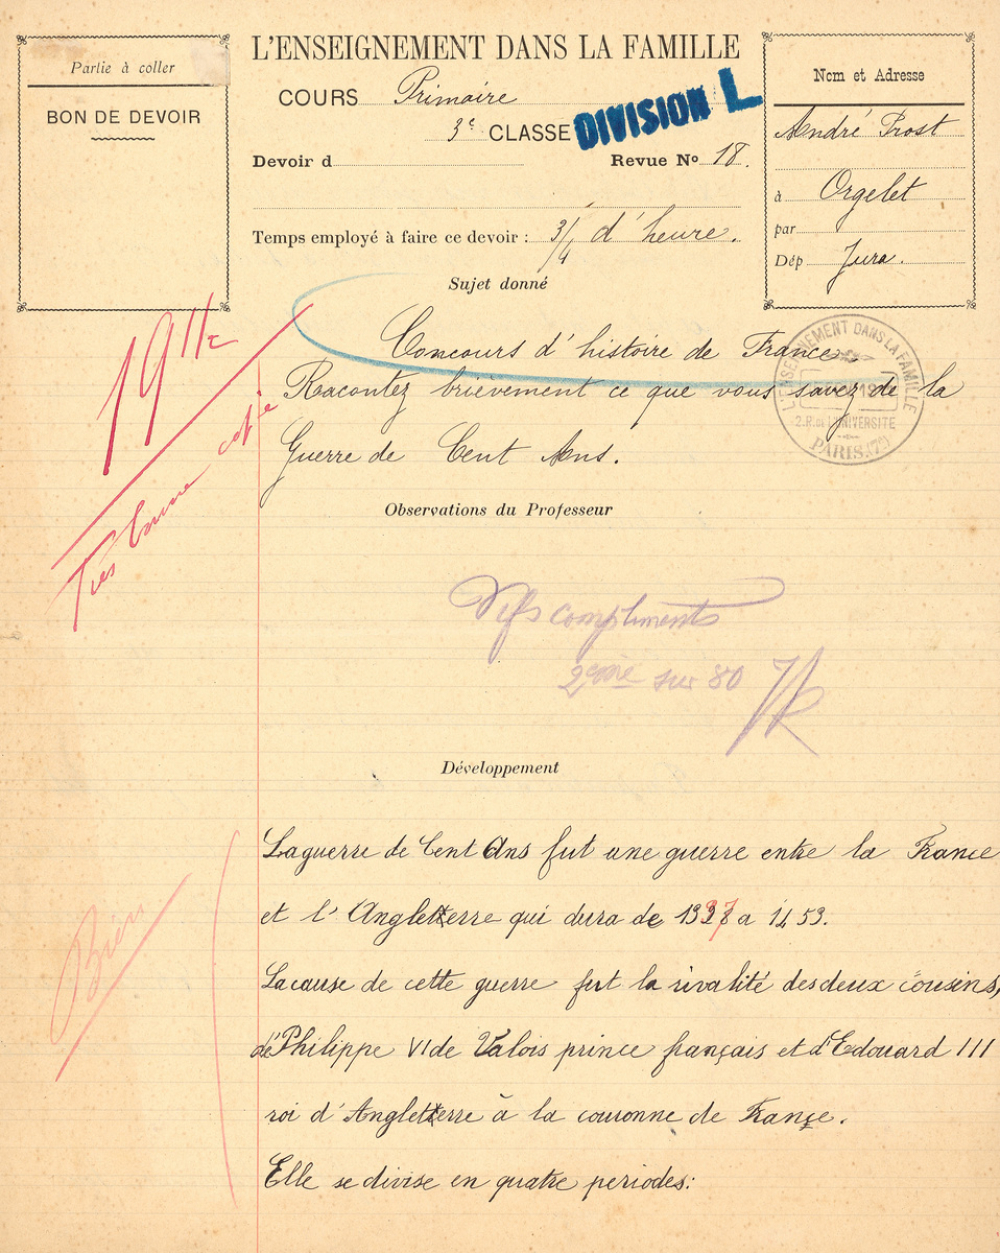 L'ENSEIGNEMENT DANS LA FAMILLE
Partie à coller
BON DE DEVOIR
COURS Primaire
3e CLASSE
DIVISION L
Devoir d
Revue No 18.
Temps employé à faire ce devoir : 3/4 d'heure.
Nom et Adresse
André Prost
à Orgelet
par
Dép Jura.
Sujet donné
Concours d'histoire de France
Racontez brièvement ce que vous savez de la
Guerre de Cent Ans.
L'ENSEIGNEMENT DANS LA FAMILLE
2.R. de L'UNIVERSITE
PARIS (7e)
19 1/2
Très bonne copie
Observations du Professeur
Vifs compliments
2ème sur 80
Développement
Bien
La guerre de Cent Ans fut une guerre entre la France
et l'Angleterre qui dura de 1337 a 1453.
La cause de cette guerre fut la rivalité des deux cousins,
de Philippe VI de Valois prince français et d'Edouard III
roi d'Angleterre à la couronne de France.
Elle se divise en quatre periodes: